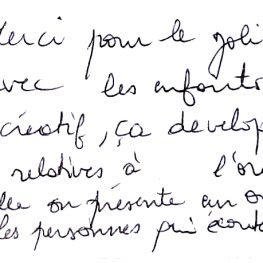 Merci pour le joli
avec les enfants
créatif, ça develop
relatives à l'or
on présente un o
les personnes qui écout